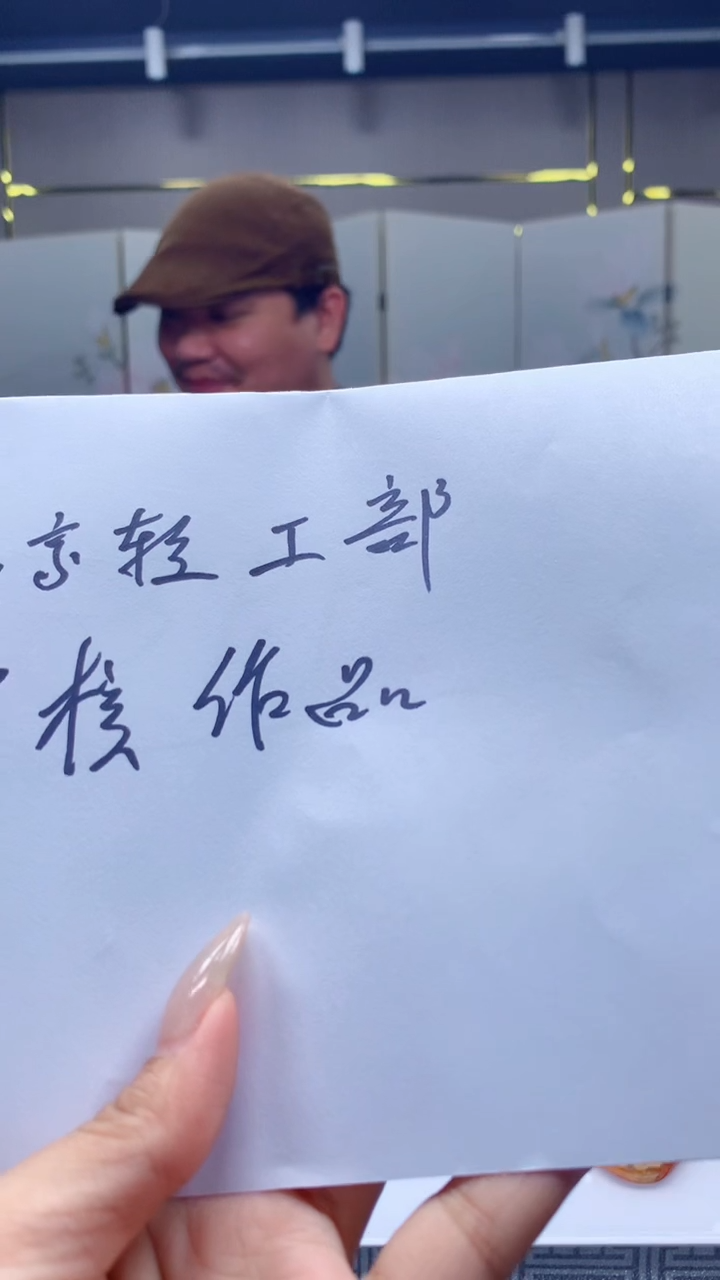 京轻工部
核作品